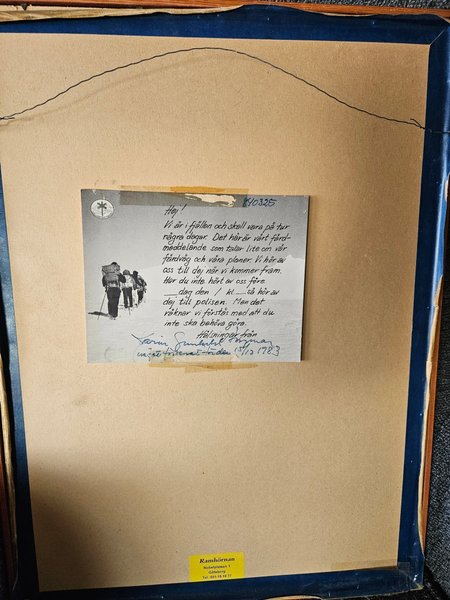 840325
Hej!
Vi är i fjällen och skall vara på tur
några dagar. Det här är vårt färd-
meddelande som talar lite om vår
färdväg och våra planer. Vi hör av
oss till dej när vi kommer fram.
Har du inte hört av oss före
___dag den / kl ___ så hör av
dej till polisen. Men det
räknar vi förstås med att du
inte ska behöva göra.
Hälsningar från
12/12 1983
Ramhörnan
Göteborg